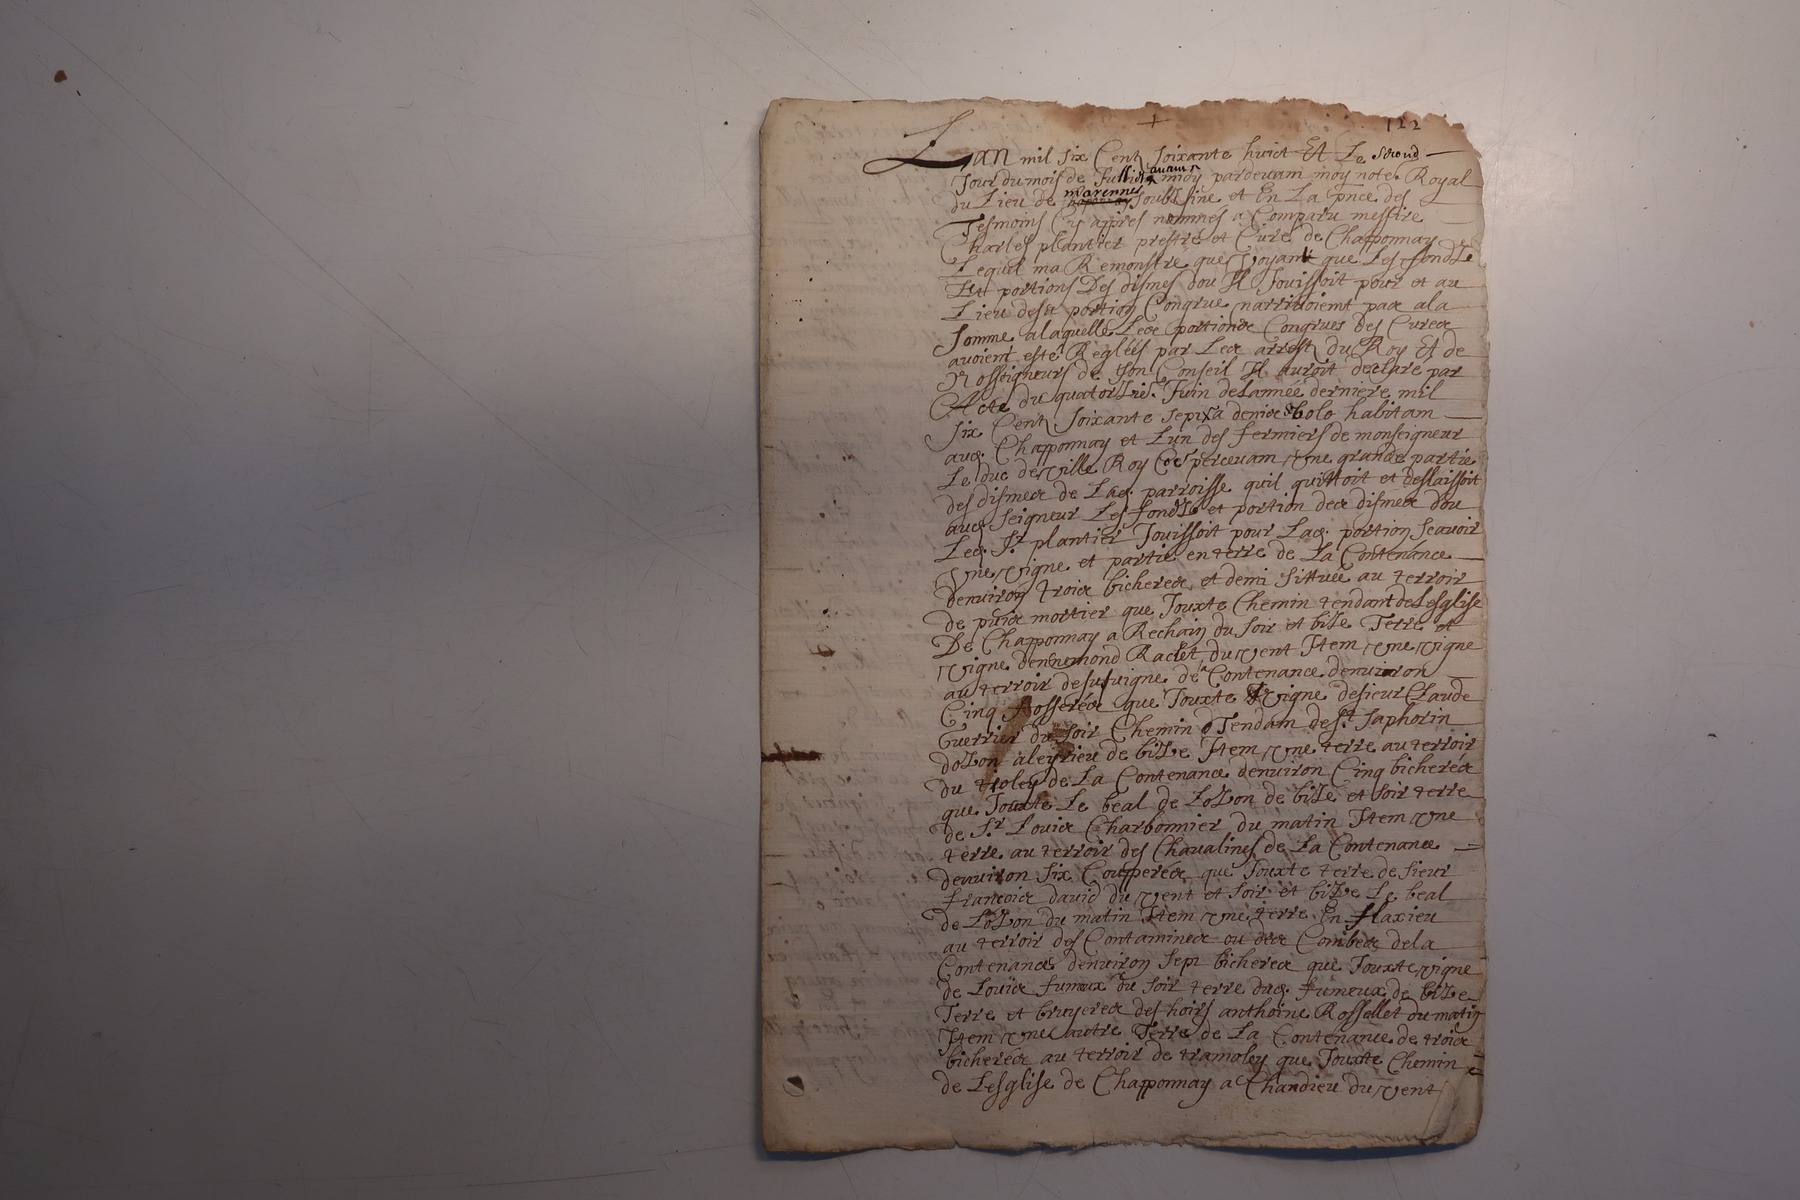 122
Lan mil six Cent soixante huict Et Le second
Jour du mois de Juillet avant midy pardevam moy note. Royal
du Lieu de marennes soubsigne et En La pnce des
Tesmoins Cy appres nommes a Comparu messire
Charles plantier prestre et Cure de Chapponnay
Lequel ma Remonstre que voyant que Les fondz
Et portions Des dismes dou Il Jouissoit pour et au
Lieu desa portion Congrue narrivoient pas ala
somme alaquelle Les portions Congrues des Cures
avoient esté Reglées par Les arrestz du Roy Et de
Nosseigneurs de son Conseil Il auroit declare par
Acte du quatorzie. Juin delannée derniere mil
six Cent soixante sept a denis bolo habitam
aud. Chapponnay et Lun des fermiers de monseigneur
Le duc de ville Roy percevam une grande partie
des dismes de Lad. parroisse quil quittoit et deslaissoit
aud. seigneur Les fondz et portion des dismes dou
Led. Sr. plantier Jouissoit pour Lad. portion scavoir
une vigne et partie en terre de La Contenance
denviron trois bicherés et demi sittuée au terroir
de puis mortier que Jouxte Chemin tendant de Lesglise
De Chapponnay a Rechain du soir et bize Terre et
vigne dennemond Raclet du vent Item une vigne
au terroir de suivigne de Contenance denviron
Cinq fosserés que Jouxte vigne de sieur Claude
Guerrier du soir Chemin Tendam de St. saphorin
dozon aleyrieu de bize Item une terre au terroir
du tioley de La Contenance denviron Cinq bicherés
que Jouxte Le beal de Lozon de bize et soir terre
de Sr. Louis Charbonnier du matin Item une
terre au terroir des Chavalines de La Contenance
denviron six Coupperés que Jouxte terre de sieur
francois david du vent et soir et bize Le beal
de Lozon du matin Item une terre En flaxieu
au terroir des Contamines ou des Combes dela
Contenance denviron sept bicheres que Jouxte vigne
de Louis fumeux du soir terre dud. fumeux de bize
Terre et bruyeres des hoirs anthoine Rossellet du matin
Item une autre Terre de La Contenance de trois
bicherés au terroir de tramoley que Jouxte Chemin
de Lesglise de Chapponnay a Chandieu du vent